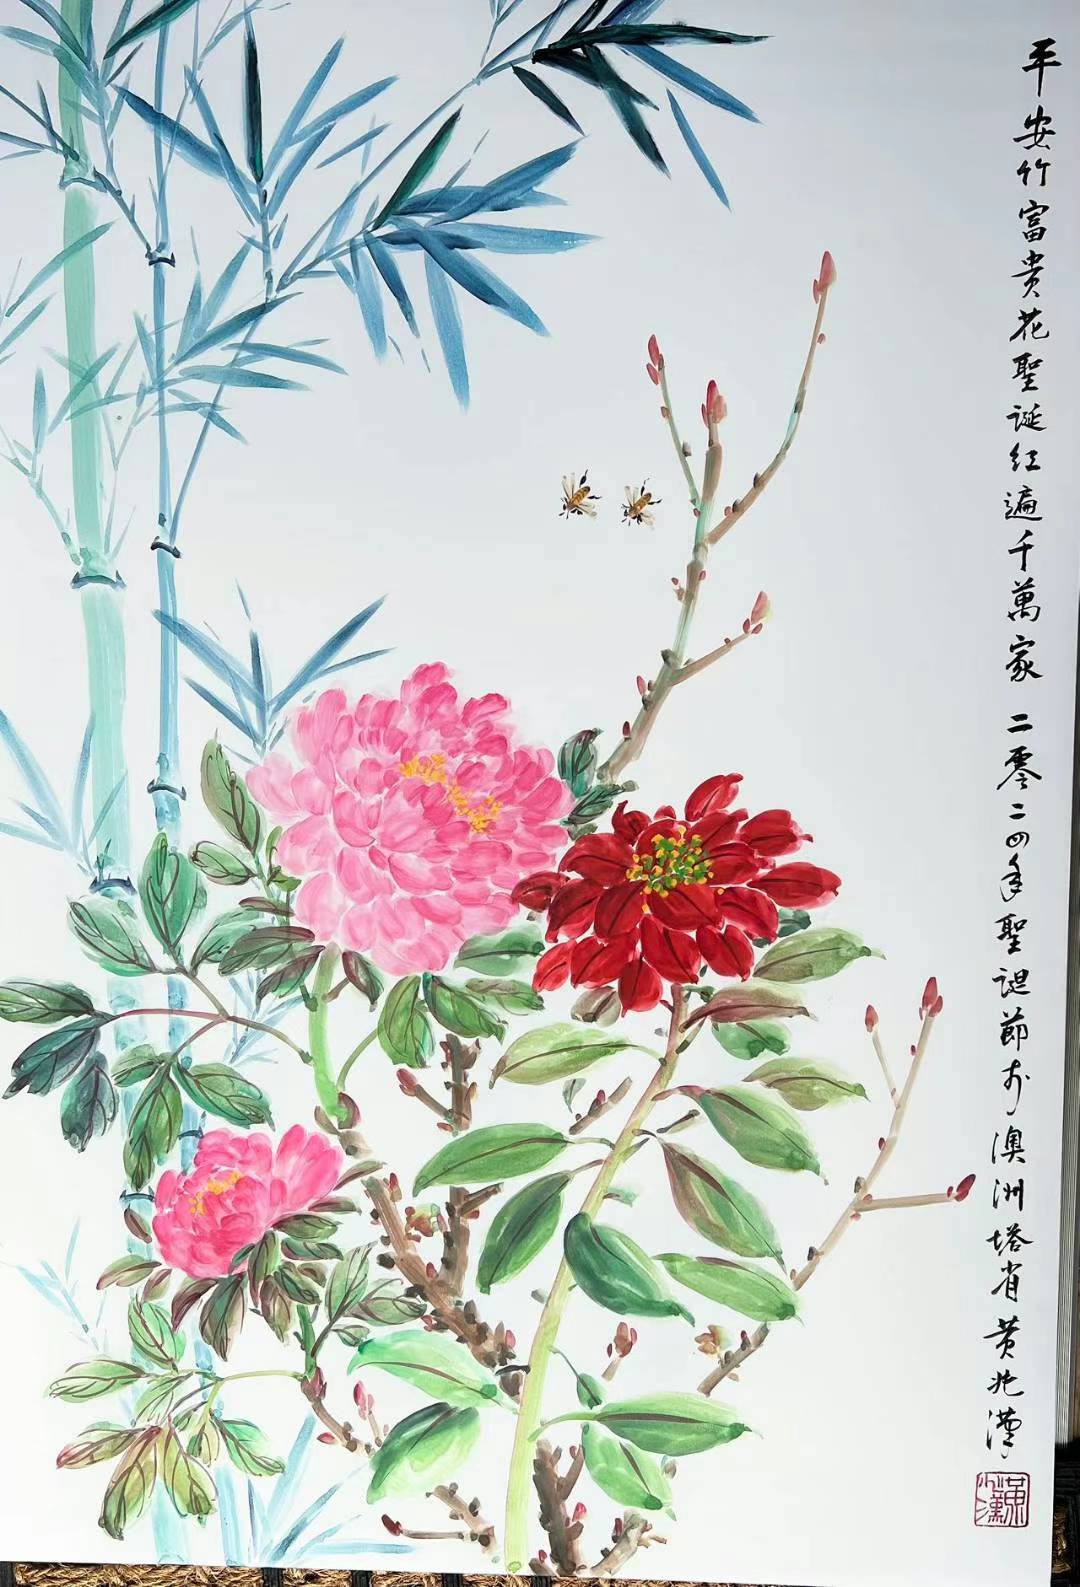 平安竹富贵花聖诞红遍千萬家 二零二四年聖诞節於澳洲塔省黄兆漢
黄兆漢